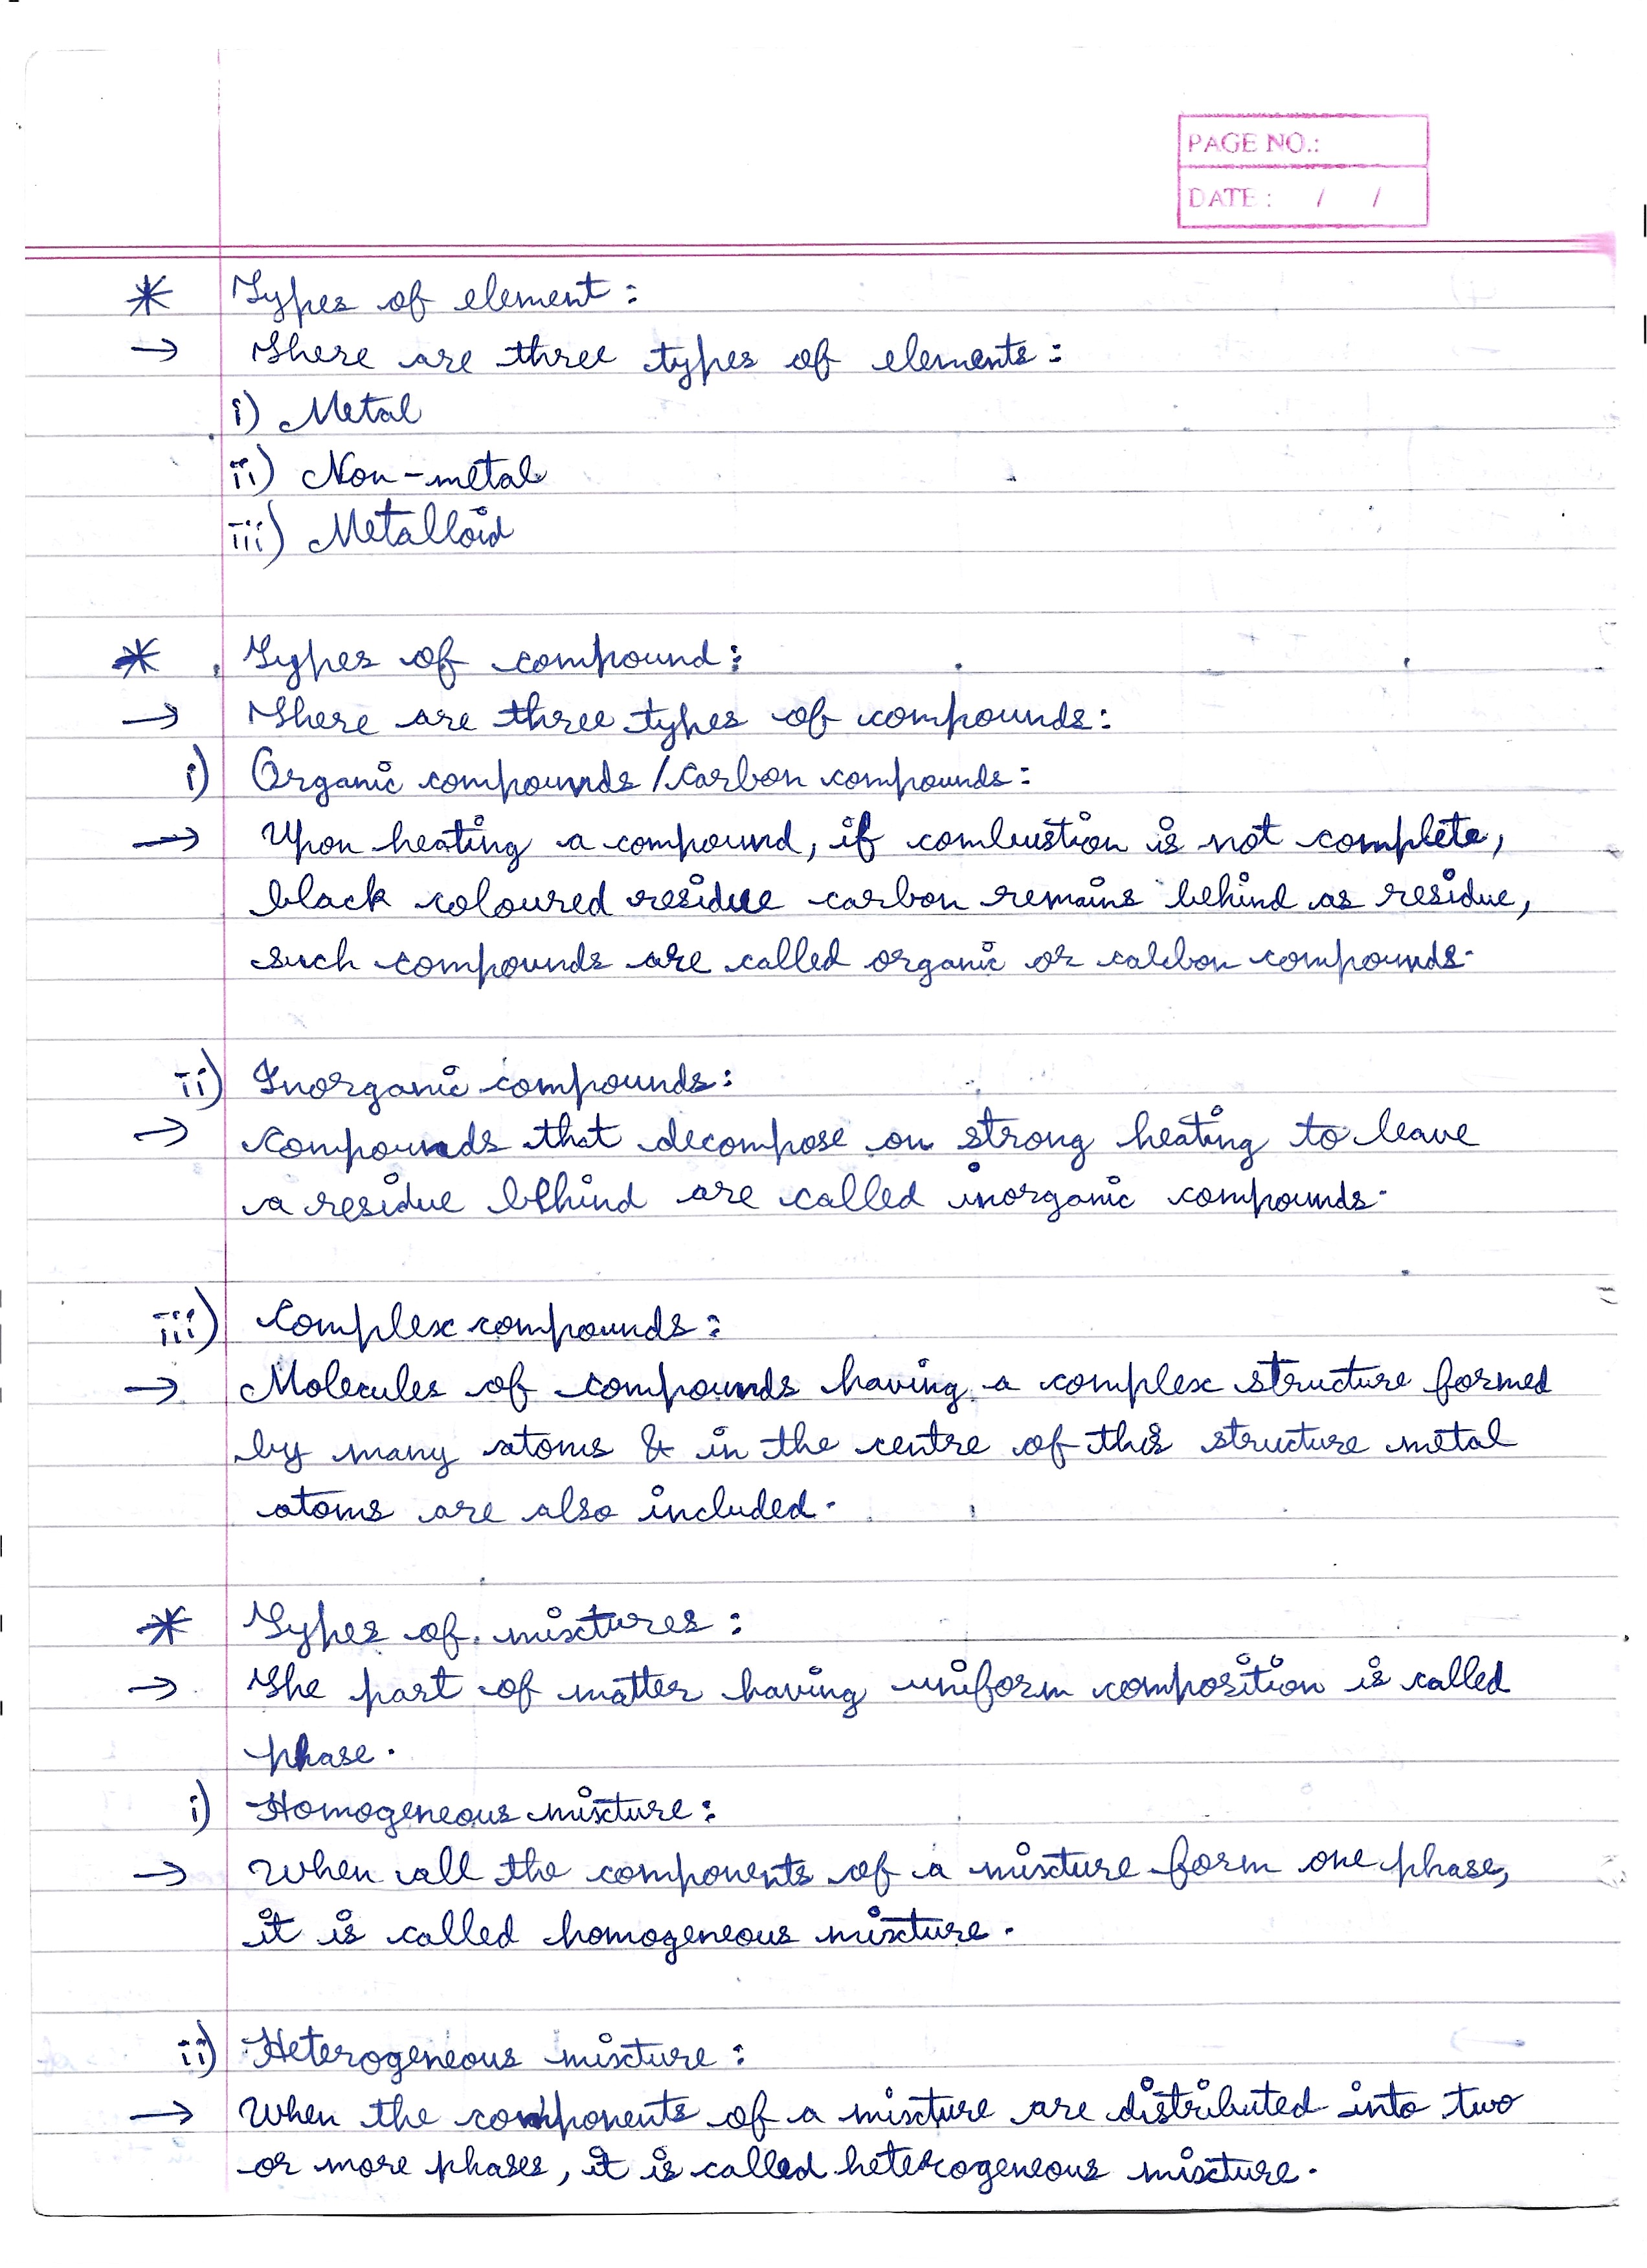 PAGE NO.:
DATE : / /
* Types of element :
→ There are three types of elements :
i) Metal
ii) Non-metal
iii) Metalloid
* Types of compound :
→ There are three types of compounds :
i) Organic compounds / Carbon compounds :
→ Upon heating a compound, if combustion is not complete,
black coloured residue carbon remains behind as residue,
such compounds are called organic or carbon compounds.
ii) Inorganic compounds :
→ Compounds that decompose on strong heating to leave
a residue behind are called inorganic compounds.
iii) Complex compounds :
→ Molecules of compounds having a complex structure formed
by many atoms & in the centre of this structure metal
atoms are also included.
* Types of mixtures :
→ The part of matter having uniform composition is called
phase.
i) Homogeneous mixture :
→ When all the components of a mixture form one phase,
it is called homogeneous mixture.
ii) Heterogeneous mixture :
→ When the components of a mixture are distributed into two
or more phases, it is called heterogeneous mixture.